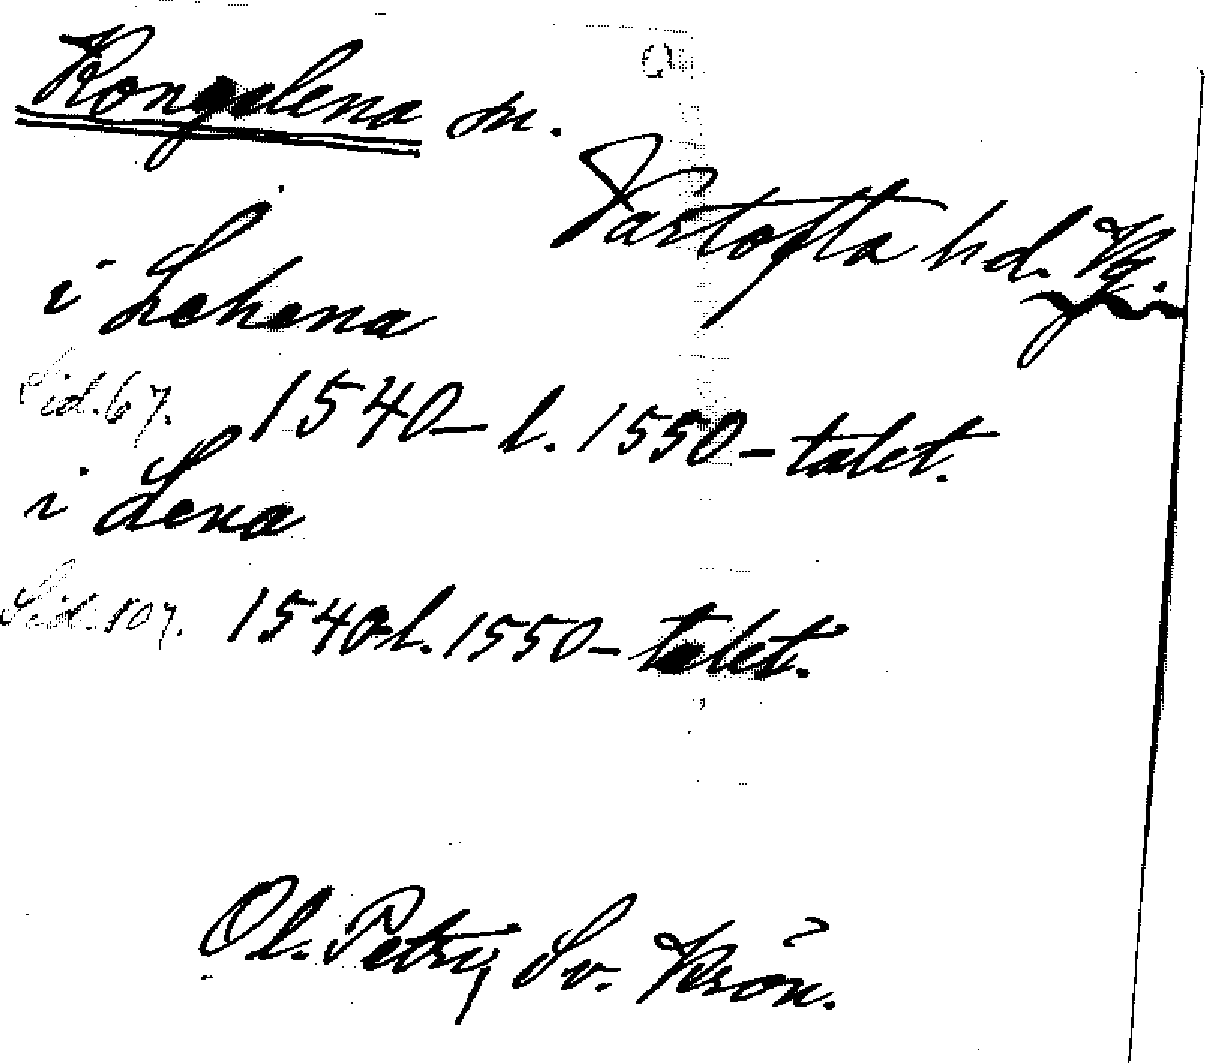 Kongslena sn.
Vartofta hd. Vg.
i Lehena
Sid. 67. 1540- l. 1550-talet.
i Lena
Sid. 107. 1540 l. 1550-talet.
Ol. Petry Sv. Krön.